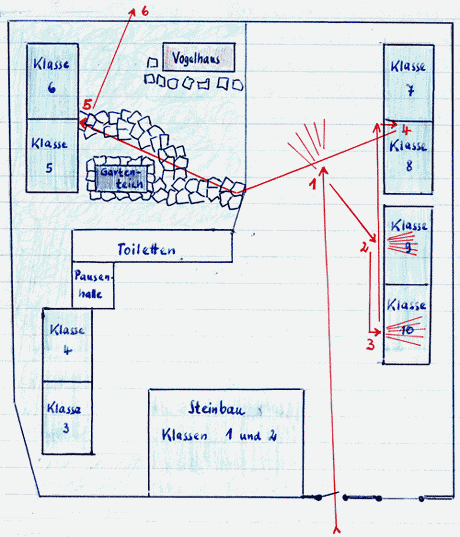 6
Vogelhaus
Klasse
6
5
Klasse
5
Garten-
teich
Klasse
7
4
Klasse
8
1
2
Klasse
9
3
Klasse
10
Toiletten
Pausen-
halle
Klasse
4
Klasse
3
Steinbau
Klassen 1 und 2